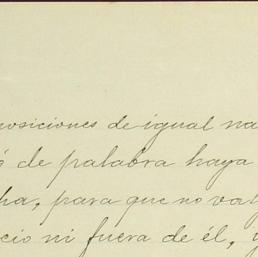 posiciones de igual na
ó de palabra haya
ha, para que no val
cio ni fuera de él, y